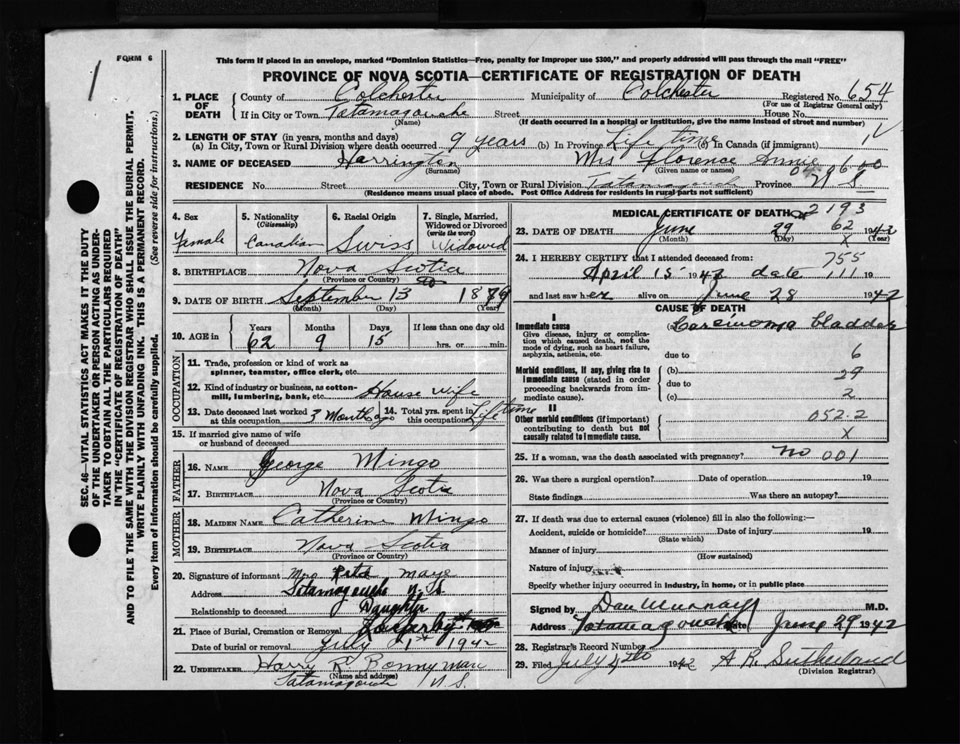 FORM 6
1
This form if placed in an envelope, marked "Dominion Statistics—Free, penalty for improper use $300," and properly addressed will pass through the mail "FREE"
PROVINCE OF NOVA SCOTIA—CERTIFICATE OF REGISTRATION OF DEATH
SEC. 46—VITAL STATISTICS ACT MAKES IT THE DUTY
OF THE UNDERTAKER OR PERSON ACTING AS UNDER-
TAKER TO OBTAIN ALL THE PARTICULARS REQUIRED
IN THE "CERTIFICATE OF REGISTRATION OF DEATH"
AND TO FILE THE SAME WITH THE DIVISION REGISTRAR WHO SHALL ISSUE THE BURIAL PERMIT.
WRITE PLAINLY WITH UNFADING INK. THIS IS A PERMANENT RECORD.
Every item of information should be carefully supplied. (See reverse side for instructions.)
1. PLACE OF DEATH County of Colchester Municipality of Colchester Registered No. 654
(For use of Registrar General only)
If in City or Town Tatamagouche Street House No.
(Name) (If death occurred in a hospital or institution, give the name instead of street and number)
2. LENGTH OF STAY (in years, months and days)
(a) In City, Town or Rural Division where death occurred 9 years (b) In Province Life time (c) In Canada (if immigrant)
3. NAME OF DECEASED Harrington Mrs Florence Annie
(Surname) (Given name or names)
RESIDENCE No. Street City, Town or Rural Division Tatamagouche Province N S
(Residence means usual place of abode. Post Office Address for residents in rural parts not sufficient)
4. Sex Female
5. Nationality (Citizenship) Canadian
6. Racial Origin Swiss
7. Single, Married, Widowed or Divorced (write the word) Widowed
8. BIRTHPLACE Nova Scotia
(Province or Country)
9. DATE OF BIRTH September 13 1879
(Month) (Day) (Year)
10. AGE in Years Months Days If less than one day old
62 9 15 hrs. or min.
OCCUPATION
11. Trade, profession or kind of work as
spinner, teamster, office clerk, etc.
12. Kind of industry or business, as cotton-
mill, lumbering, bank, etc. House wife
13. Date deceased last worked at this occupation 3 Months ago 14. Total yrs. spent in this occupation Life time
15. If married give name of wife
or husband of deceased
FATHER
16. NAME George Mingo
17. BIRTHPLACE Nova Scotia
(Province or Country)
MOTHER
18. MAIDEN NAME Catherine Mingo
19. BIRTHPLACE Nova Scotia
(Province or Country)
20. Signature of informant Mrs Maye
Address Tatamagouche N.S.
Relationship to deceased Daughter
21. Place of Burial, Cremation or Removal
Date of burial or removal July 1st 1942
22. UNDERTAKER Harry R Bonnyman
(Name and address)
Tatamagouche N.S.
MEDICAL CERTIFICATE OF DEATH 2193
23. DATE OF DEATH June 29 1942
62
X
(Month) (Day) (Year)
24. I HEREBY CERTIFY that I attended deceased from:
755
April 15 1942 date 111 19
and last saw her alive on June 28 1942
CAUSE OF DEATH
I
Immediate cause (a) Carcinoma bladder
Give disease, injury or complica-
tion which caused death, not the
mode of dying, such as heart failure,
asphyxia, asthenia, etc.
due to 6
Morbid conditions, if any, giving rise to
immediate cause (stated in order
proceeding backwards from im-
mediate cause).
(b) 29
due to
(c) 2
II
Other morbid conditions (if important)
contributing to death but not
causally related to immediate cause.
052.2
X
25. If a woman, was the death associated with pregnancy? No 001
26. Was there a surgical operation? Date of operation 19
State findings Was there an autopsy?
27. If death was due to external causes (violence) fill in also the following:—
Accident, suicide or homicide? Date of injury 19
(State which)
Manner of injury
(How sustained)
Nature of injury
Specify whether injury occurred in industry, in home, or in public place
Signed by Dan Murray M.D.
Address Tatamagouche Date June 29 1942
28. Registrar's Record Number
29. Filed July 4th 1942 A R Sutherland
(Division Registrar)